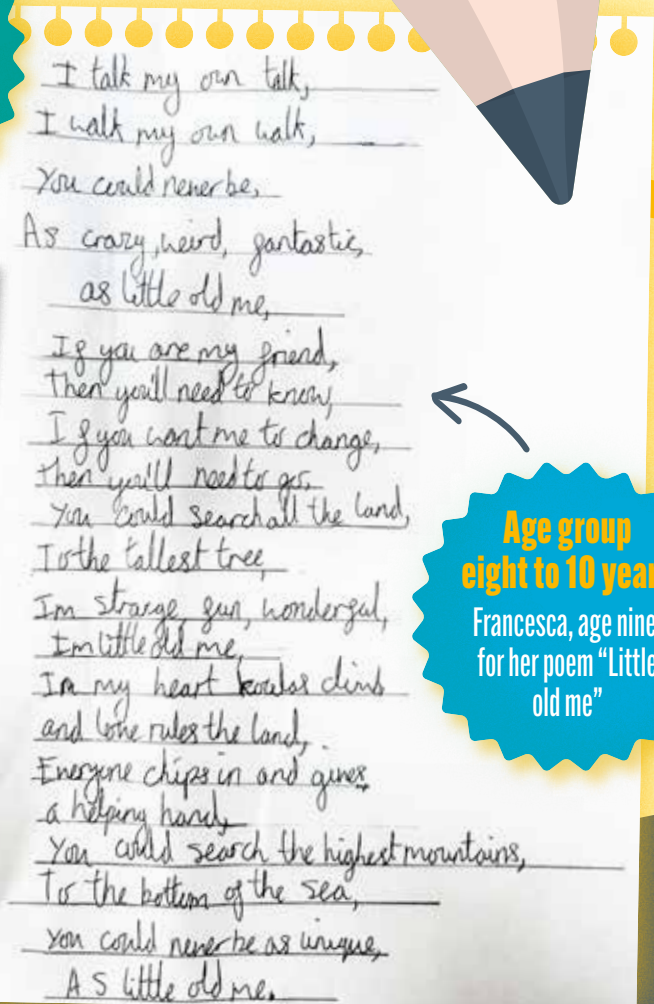 I talk my own talk,
I walk my own walk,
You could never be,
As crazy, weird, fantastic,
as little old me,
If you are my friend,
then you'll need to know,
If you want me to change,
then you'll need to go.
You could search all the land,
To the tallest tree,
Im strange, fun, wonderful,
Im little old me,
In my heart koalas climb
and love rules the land,
Everyone chips in and gives
a helping hand,
You could search the highest mountains,
To the bottom of the sea,
You could never be as unique,
AS little old me.
Age group
eight to 10 year
Francesca, age nine
for her poem “Little
old me”